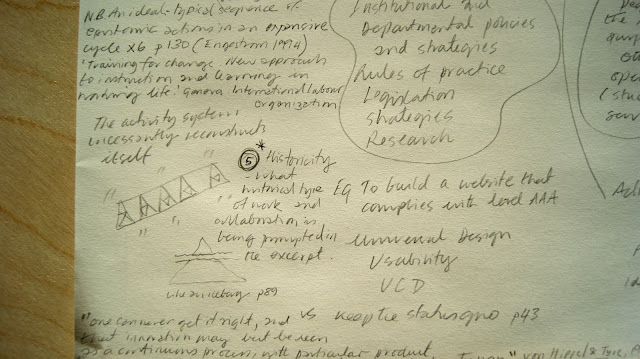 N.B. An ideal-typical sequence of
epistemic actions in an expansive
cycle x6 p130 (Engeström 1994)
'Training for change. New approach
to instruction and learning in
working life.' Geneva International labour
organization
The activity system
incessantly reconstructs
itself
Institutional and
Departmental policies
and strategies
Rules of practice
Legislation
strategies
Research
5 * Historicity
- what
historical type
of work and
collaboration is
being prompted in
the excerpt.
like an iceberg p89
EG To build a website that
complies with level AAA
Universal Design
Usability
UCD
"one can never get it right, and
that innovation may best be seen
as a continuous process, with particular product
vs keep the status quo p43
von Hippel & Tyre